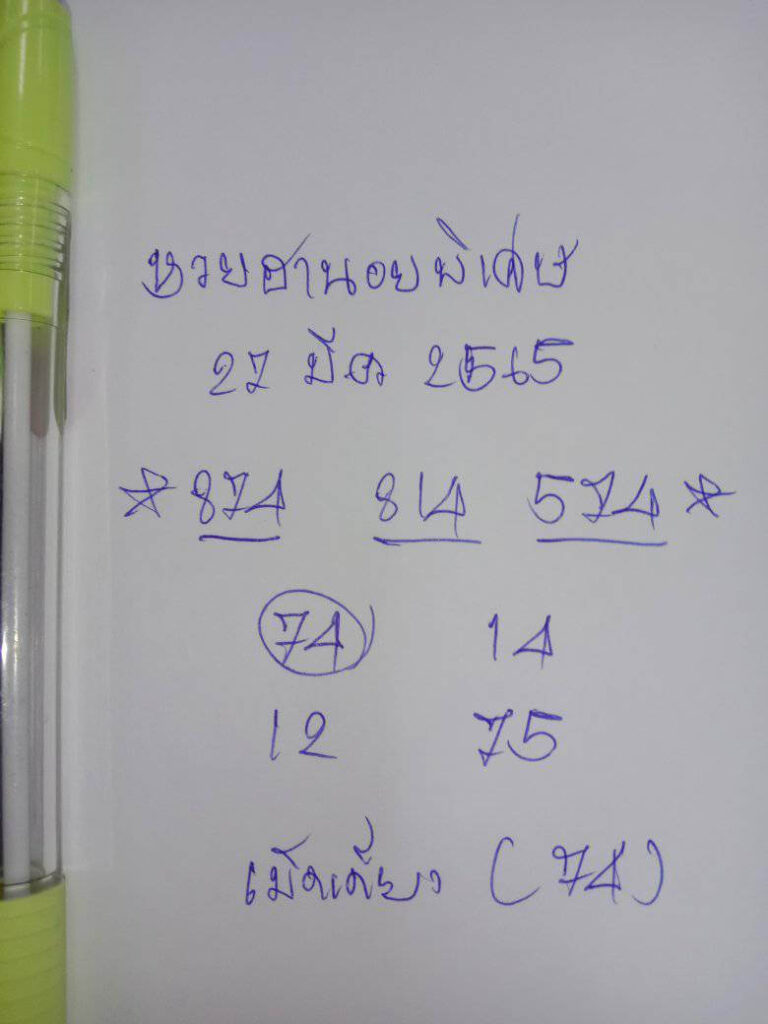 หวยฮานอยพิเศษ
27 มีค 2565
* 874 814 574 *
74 14
12 75
เม็ดเดียว (74)